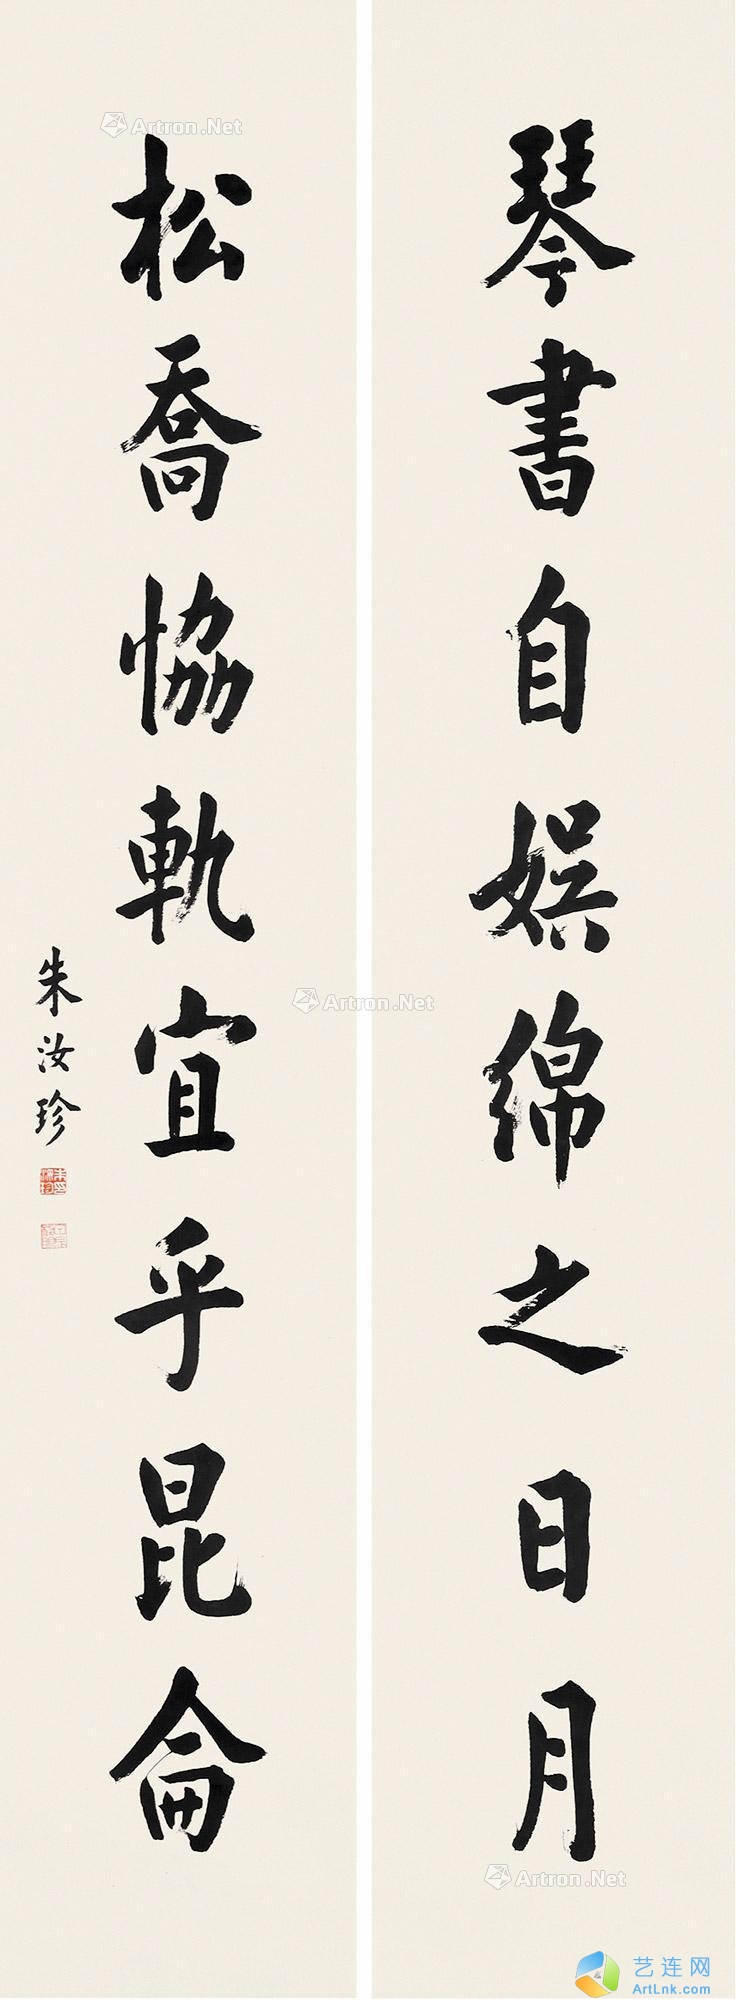 琴書自娱綿之日月
松喬恊軌宜乎昆侖
朱汝珍
Artron.Net
Artron.Net
Artron.Net
艺连网
ArtLnk.com